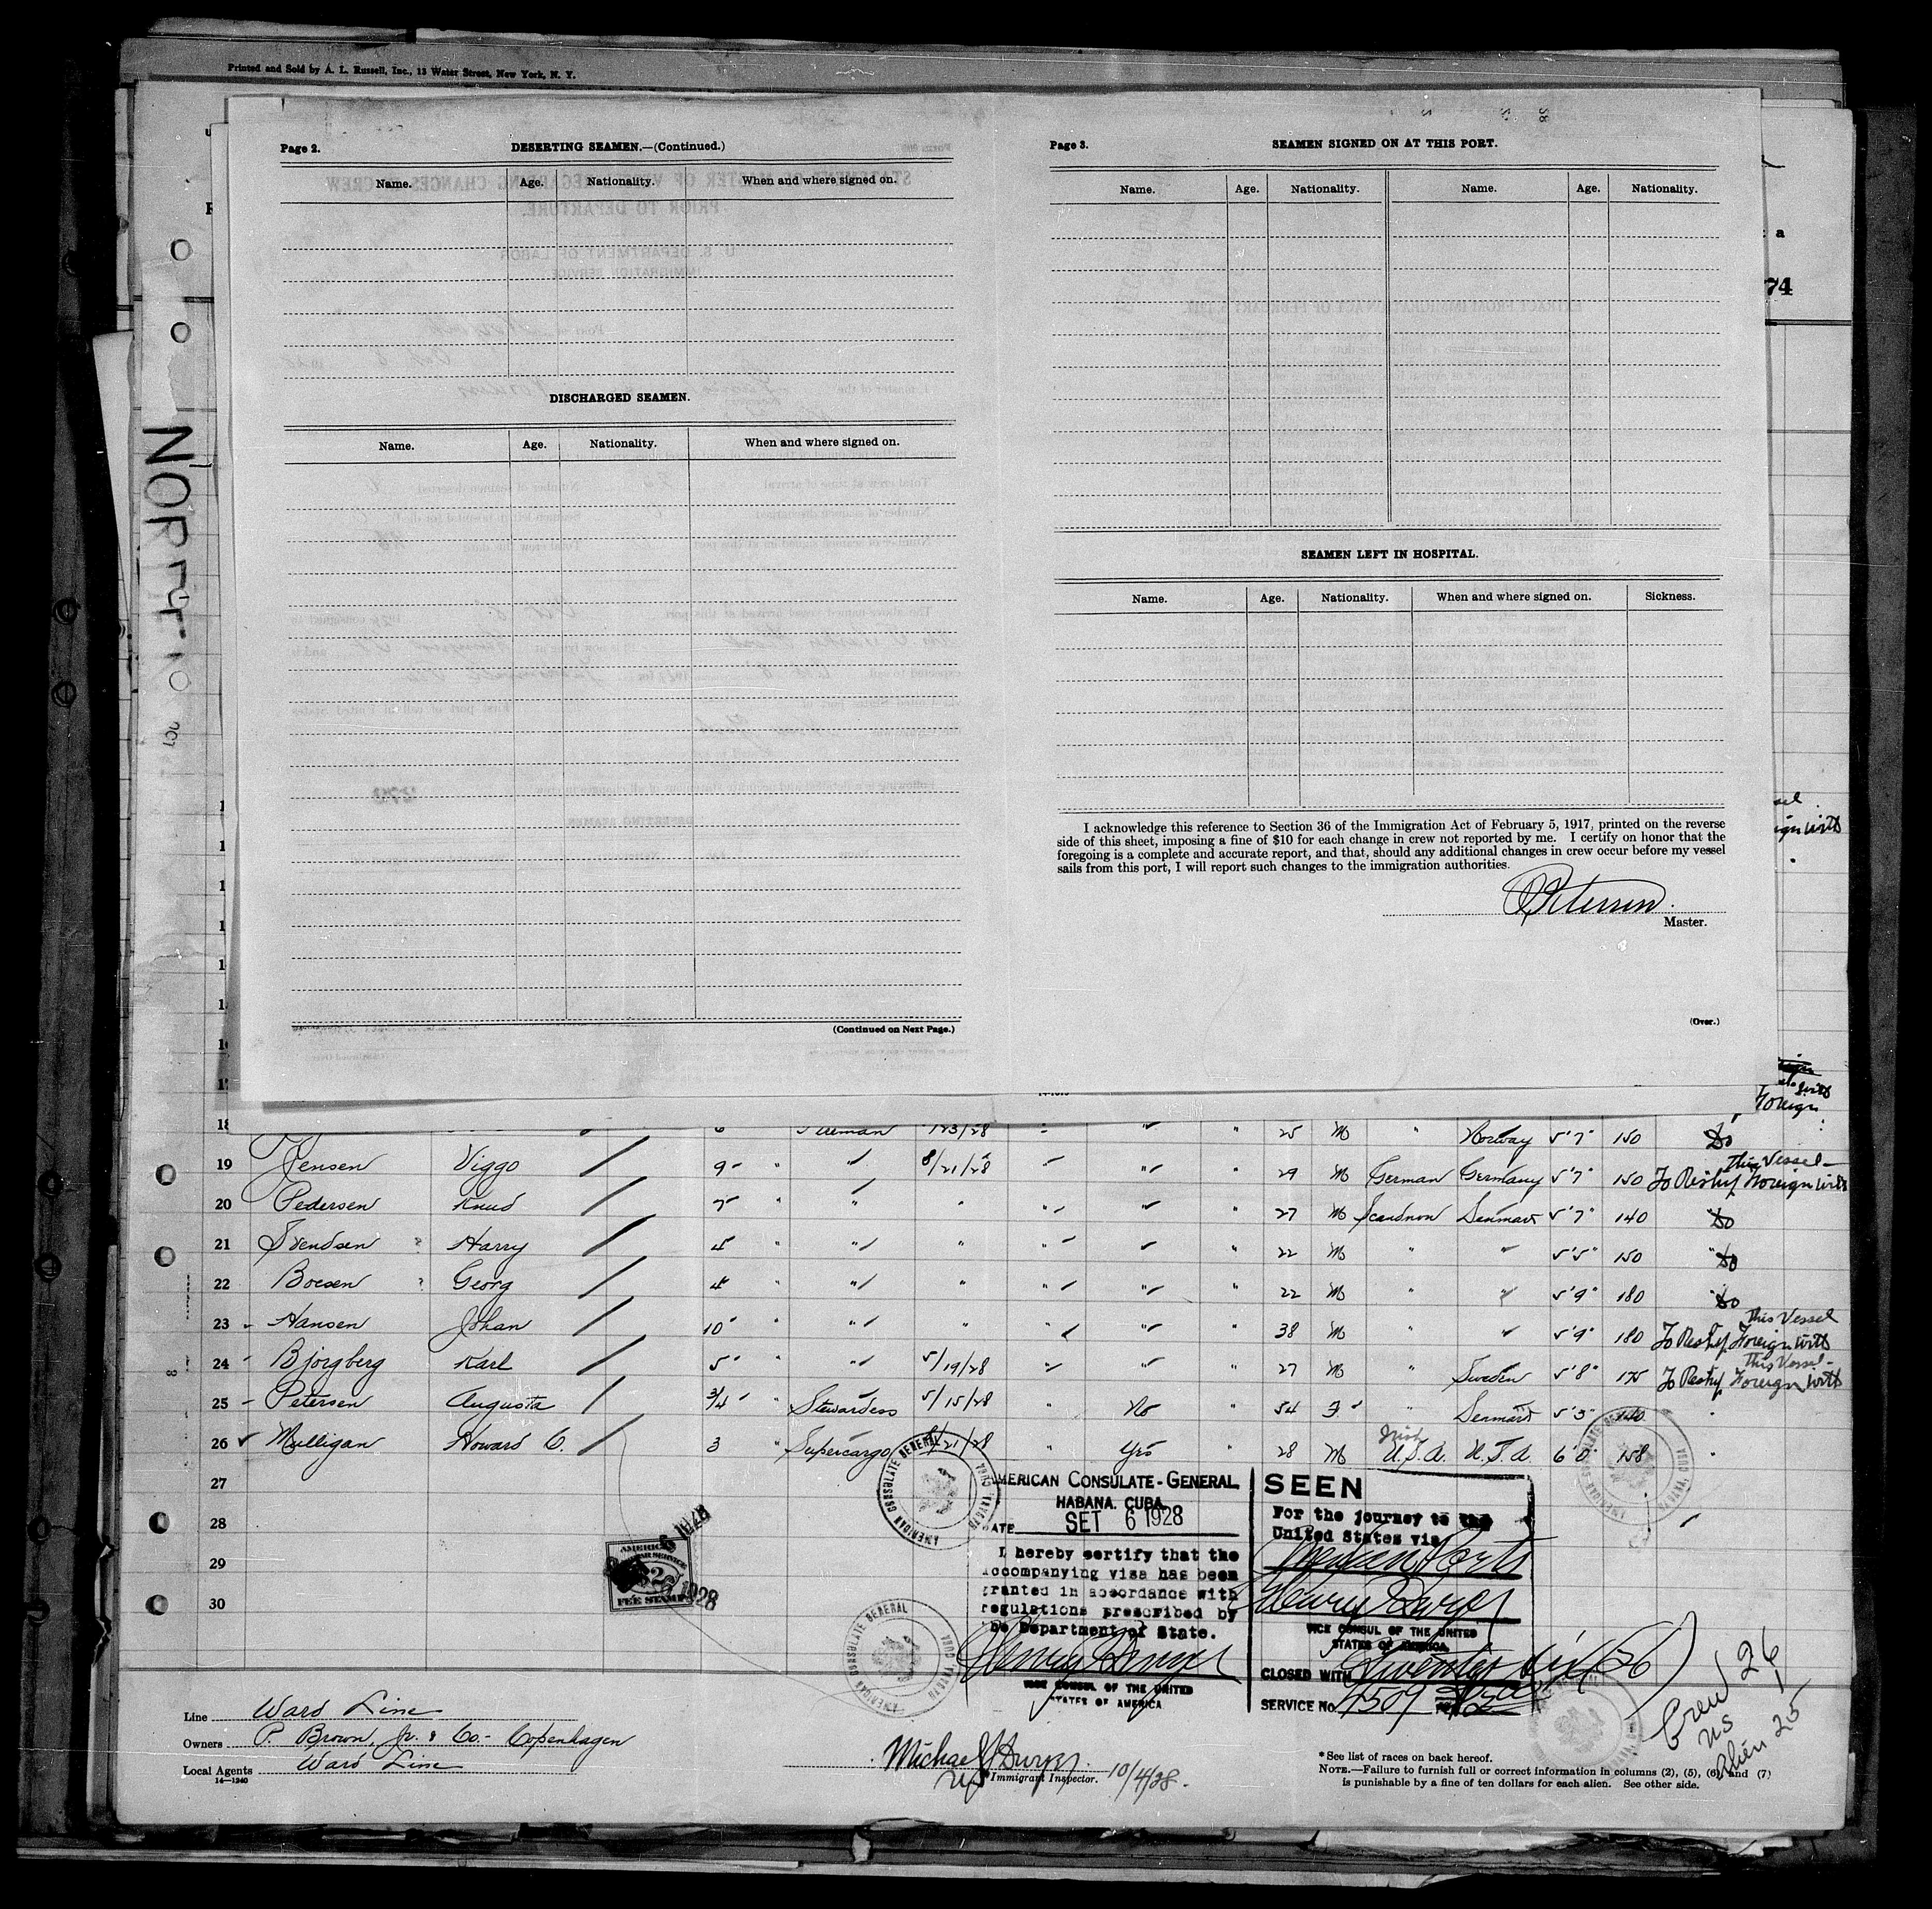 Printed and Sold by A. L. Russell, Inc., 13 Water Street, New York, N. Y.
Page 2.
DESERTING SEAMEN.—(Continued.)
Name. Age. Nationality. When and where signed on.
DISCHARGED SEAMEN.
Name. Age. Nationality. When and where signed on.
(Continued on Next Page.)
Page 3.
SEAMEN SIGNED ON AT THIS PORT.
Name. Age. Nationality. Name. Age. Nationality.
SEAMEN LEFT IN HOSPITAL.
Name. Age. Nationality. When and where signed on. Sickness.
I acknowledge this reference to Section 36 of the Immigration Act of February 5, 1917, printed on the reverse
side of this sheet, imposing a fine of $10 for each change in crew not reported by me. I certify on honor that the
foregoing is a complete and accurate report, and that, should any additional changes in crew occur before my vessel
sails from this port, I will report such changes to the immigration authorities.
Petersen.
Master.
(Over.)
a
74
NORF
Foreign
18 25 M " Norway 5'7" 150 do
19 Jensen Viggo 9 " " 8/21/28 " " " 29 M German Germany 5'7" 150 To Reship Foreign with This Vessel
20 Pedersen Knud 7 " " " " " 27 M Scandnvn Denmark 5'7" 140 do
21 Svendsen Harry 4 " " " " " " 22 M " " 5'5" 150 do
22 Boesen Georg 4 " " " " " " 22 M " " 5'9" 180 do
23 Hansen Johan 10 " " " " " " 38 M " " 5'9" 180 To Reship Foreign with This Vessel
24 Bjorgberg Karl 5 " " 5/19/28 " " " 27 M " Sweden 5'8" 175 To Reship Foreign with This Vessel
25 Petersen Augusta 3/4 Stewardess 5/15/28 " No " 54 F " Denmark 5'3" 140 "
26 Mulligan Howard C. 3 " Supercargo 8/21/28 " Yes " 28 M Irish U.S.A. U.S.A. 6'0" 158 "
27
28
29
30
AMERICAN CONSULATE GENERAL HABANA, CUBA
AMERICAN CONSULATE-GENERAL
HABANA. CUBA.
DATE SET 6 1928
I hereby certify that the
accompanying visa has been
granted in accordance with
regulations prescribed by
the Department of State.
VICE CONSUL OF THE UNITED
STATES OF AMERICA
SEEN
For the journey to the
United States via
Mexican Ports
VICE CONSUL OF THE UNITED
STATES OF AMERICA
CLOSED WITH Twenty six (26)
SERVICE No. 4507
AMERICAN
SERVICE
$2
FEE STAMP
1928
AMERICAN CONSULATE GENERAL HABANA, CUBA
Crew 26
US 1
Alien 25
Line Ward Line
Owners P. Brown, Jr. & Co. - Copenhagen
Local Agents Ward Line
14—1240
Michael
US Immigrant Inspector. 10/4/28.
* See list of races on back hereof.
NOTE.—Failure to furnish full or correct information in columns (2), (5), (6), and (7)
is punishable by a fine of ten dollars for each alien. See other side.